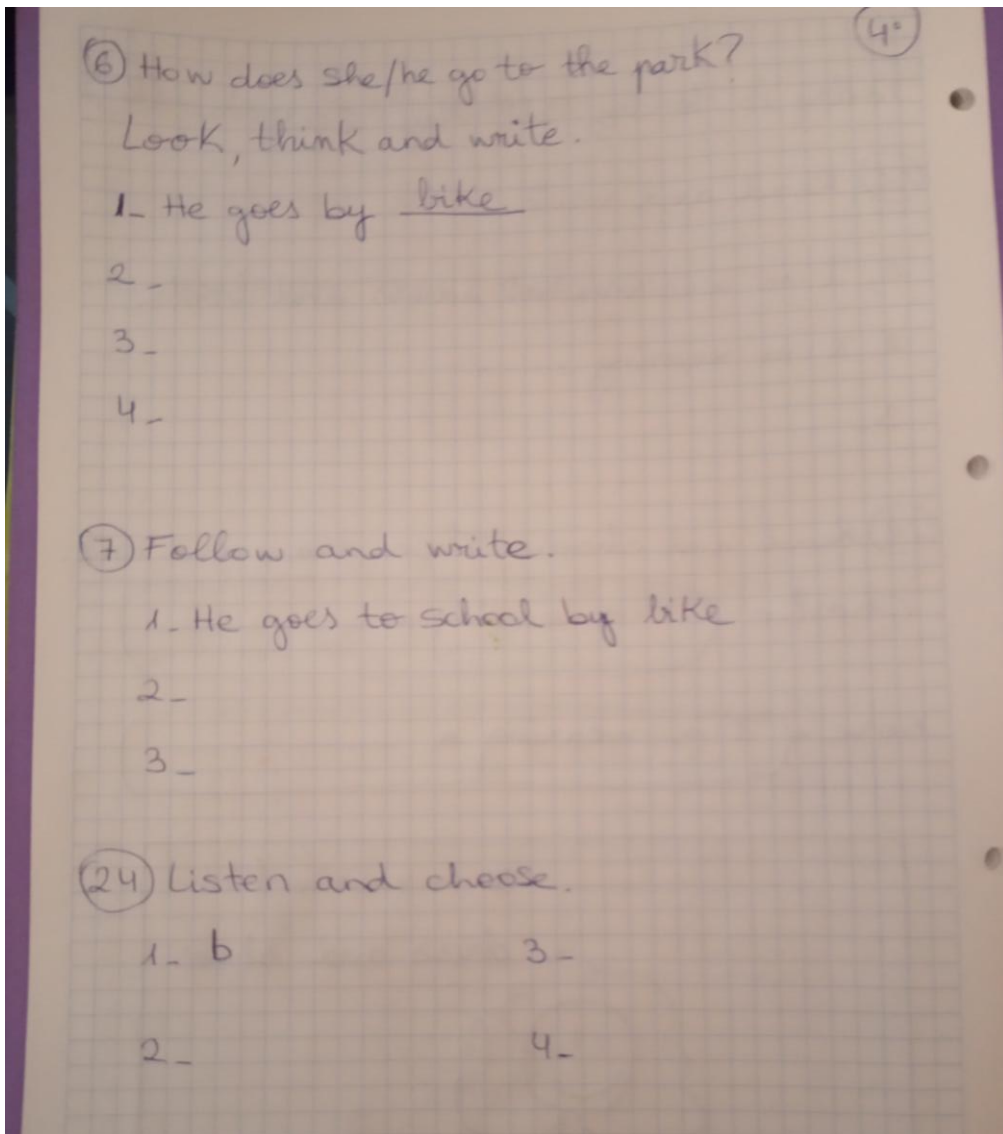 4º
6 How does she/he go to the park?
Look, think and write.
1- He goes by bike
2-
3-
4-
7 Follow and write.
1- He goes to school by bike
2-
3-
24 Listen and choose.
1- b 3-
2- 4-